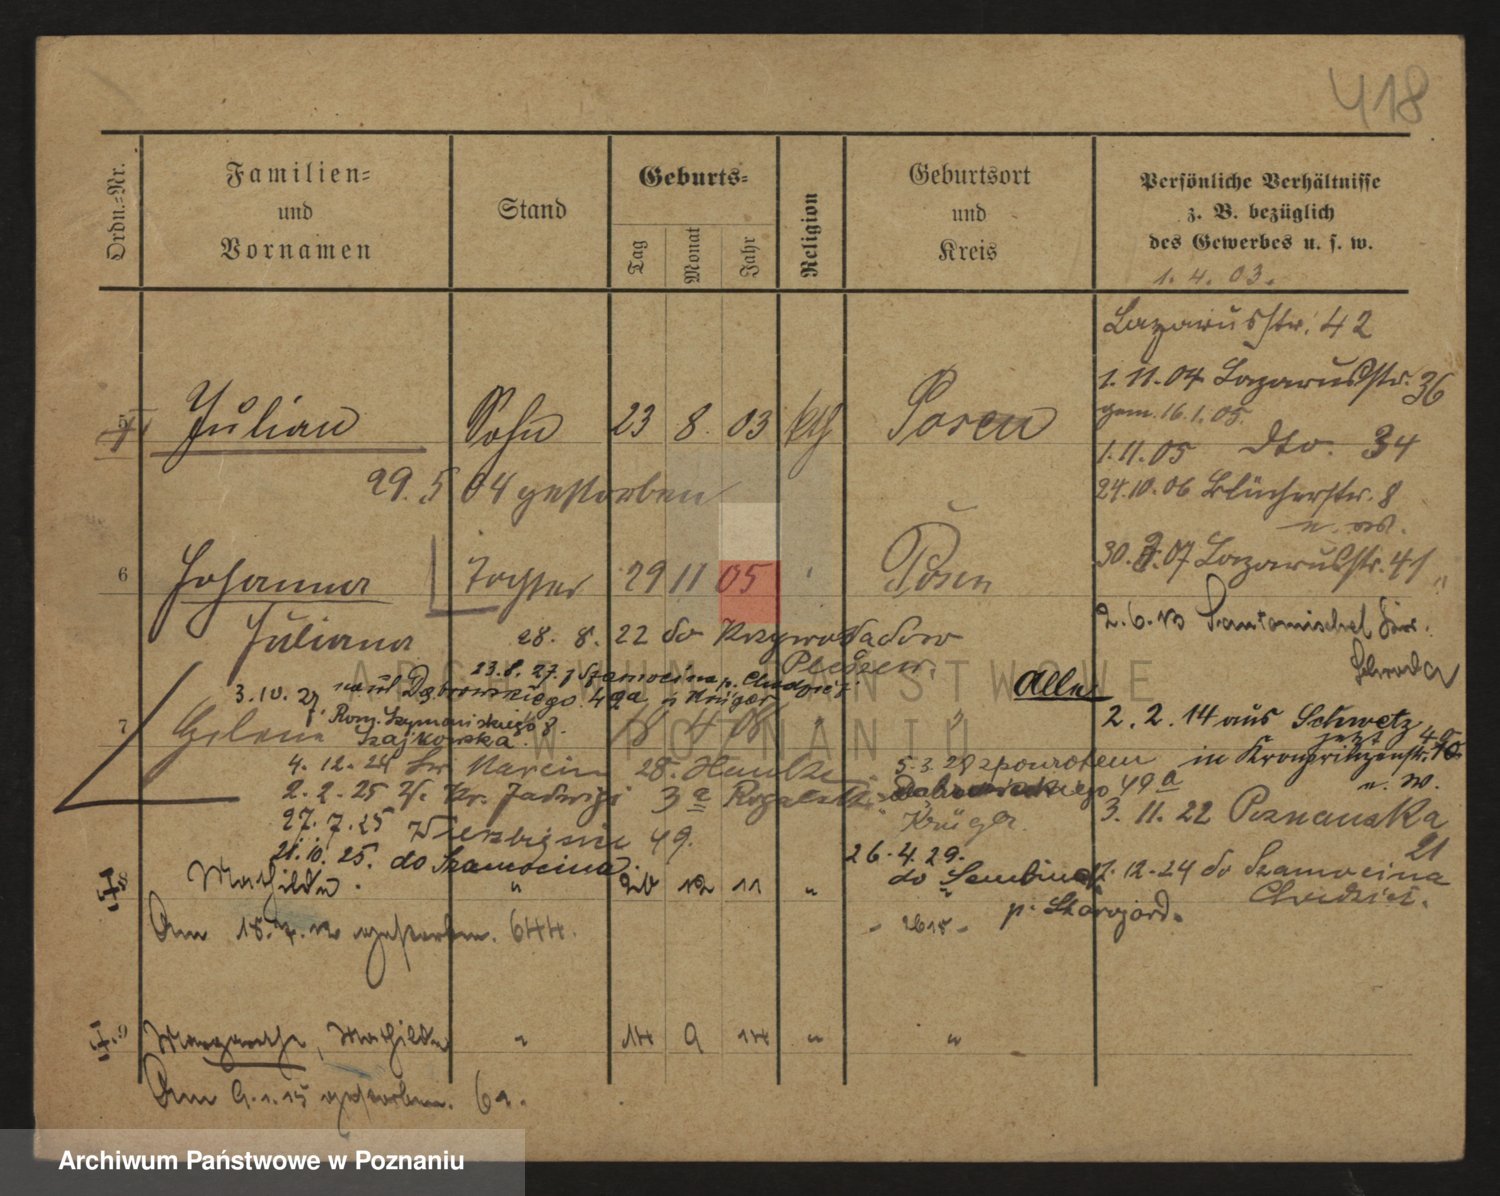 418
Ordn.-Nr.
Familien-
und
Vornamen
Stand
Geburts-
Tag
Monat
Jahr
Religion
Geburtsort
und
Kreis
Persönliche Verhältnisse
z. B. bezüglich
des Gewerbes u. s. w.
1. 4. 03.
Lazarusstr. 42
1. 11. 04 Lazarusstr. 36
gem. 16. 1. 05.
5 Julian Sohn 23 8. 03 kth Posen
1. 11. 05 dto. 34
29. 5 04 gestorben
24. 10. 06 Blücherstr. 8
u. w.
30. 07 Lazarusstr. 41
6 Johanna Tochter 29 11 05 Posen
Juliana
28. 8. 22 do Krzywosądowo
Pleszew.
2. 6. 13 Santomischel
Schroda
23. 8. 27. z Szamocina p. Chodzież
3. 10. 27 Dąbrowskiego 49a p. Krüger
Alle
7 Helene 18 4 08 "
Rom. Szymańskiego 8.
Szajkowska.
2. 2. 14 aus Schwetz
jetzt
in Kronprinzenstr.
u. w.
4. 12. 24 Św. Marcin 28. Haucke
5. 3. 28 z powrotem
2. 2. 25 Kr. Jadwigi 3a
Dąbrowskiego 49a
Krüger.
3. 11. 22 Poznańska
21
27. 7. 25 Wierzbięcice 49.
21. 10. 25. do Szamocina.
26. 4. 29.
do
p. Starogard.
17. 12. 24 do Szamocina
Chodzież.
8 Mathilde. " 20 12 11 "
Am 18. 7. 12 gestorben. 644.
9 Margarethe, Mathilde " 14 9 14 " "
Am 9. 1. 15 gestorben. 61.
ARCHIWUM PAŃSTWOWE
W POZNANIU
Archiwum Państwowe w Poznaniu